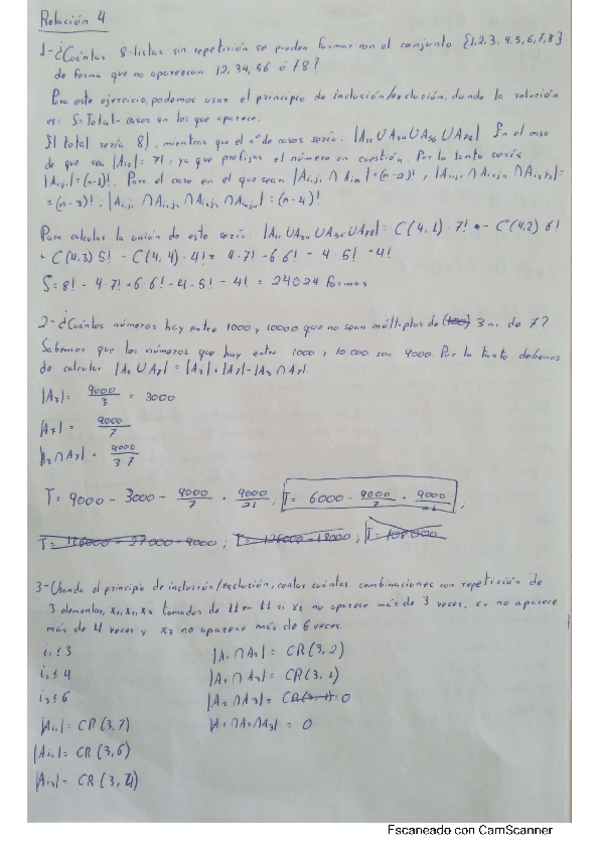 Relación 4
1-¿Cuántas 8-listas sin repetición se pueden formar con el conjunto {1,2,3,4,5,6,7,8}
de forma que no aparezcan 12, 34, 56 ó 78?
Para este ejercicio, podemos usar el principio de inclusión/exclusión, donde la solución
es: S=Total - casos en los que aparece.
El total sería 8!, mientras que el nº de casos sería: |A₁₂ ∪ A₃₄ ∪ A₅₆ ∪ A₇₈| En el caso
de que sea |A₁₂| = 7!, ya que prefijas el número en cuestión. Por lo tanto sería
|Aᵢ,ⱼ|=(n-1)!. Para el caso en el que sean
=(n-3)!;
=(n-4)!
Para calcular la unión de esto sería: |A₁₂ ∪ A₃₄ ∪ A₅₆ ∪ A₇₈| = C(4,1) · 7! - C(4,2) 6!
+ C(4,3) 5! - C(4,4) · 4! = 4·7! - 6·6! - 4·5! - 4!
S = 8! - 4·7! + 6·6! - 4·5! - 4! = 24024 formas
2-¿Cuántos números hay entre 1000 y 10000 que no sean múltiplos de 3 ni de 7?
Sabemos que los números que hay entre 1000 y 10000 son 9000. Por lo tanto debemos
de calcular |A₃ ∪ A₇| = |A₃| + |A₇| - |A₃ ∩ A₇|
|A₃| = 9000/3 = 3000
|A₇| = 9000/7
|A₃ ∩ A₇| = 9000/3·7
T = 9000 - 3000 - 9000/7 + 9000/21 ; T = 6000 - 9000/7 + 9000/21 ;
T = 126000 - 27000 + 9000 ; T = 126000 - 18000 ; T = 108000
3-Usando el principio de inclusión/exclusión, contar cuántas combinaciones con repetición de
3 elementos, x₁, x₂, x₃ tomados de 11 en 11 si x₁ no aparece más de 3 veces, x₂ no aparece
más de 4 veces y x₃ no aparece más de 6 veces.
i₁ ≤ 3 |A₁ ∩ A₂| = CR(3,2)
i₂ ≤ 4 |A₁ ∩ A₃| = CR(3,1)
i₃ ≤ 6 |A₂ ∩ A₃| = CR(3,1) 0
|Aᵢ₁| = CR(3,7) |A₁ ∩ A₂ ∩ A₃| = 0
|Aᵢ₂| = CR(3,6)
|Aᵢ₃| = CR(3,4)
Escaneado con CamScanner